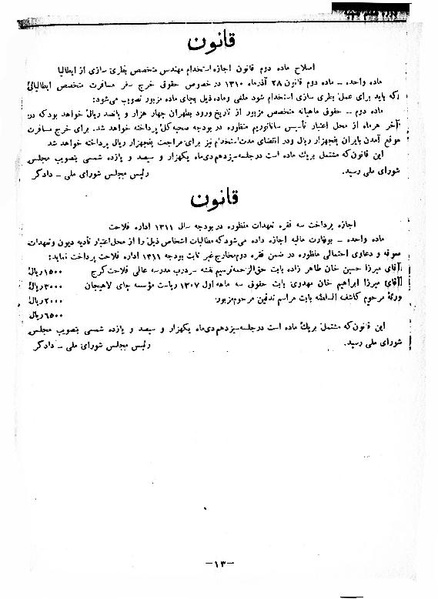 قانون
اصلاح ماده دوم قانون اجازه استخدام مهندس متخصص بطری سازی از ایطالیا
ماده واحده – ماده دوم قانون ۲۸ آذرماه ۱۳۱۰ در خصوص حقوق خرج سفر مسافرت متخصص ایطالیائی
که باید برای عمل بطری سازی استخدام شود ملغی وماده ذیل بجای ماده مزبور تصویب می‌شود:
ماده دوم – حقوق ماهیانه متخصص مزبور از تاریخ ورود بطهران چهار هزار و پانصد ریال خواهد بود که در
آخر هرماه از محل اعتبار تأسیس ساناتوریم منظوره در بودجه صحیه کل پرداخته خواهد شد. برای خرج مسافرت
موقع آمدن بایران پنجهزار ریال ودر انقضای مدت استخدام نیز برای مراجعت پنجهزار ریال پرداخته خواهد شد
این قانون که مشتمل بریک ماده است درجلسه سیزدهم دی‌ماه یکهزار و سیصد و یازده شمسی بتصویب مجلس
شورای ملی رسید. رئیس مجلس شورای ملی – دادگر
قانون
اجازه پرداخت سه فقره تعهدات منظوره در بودجه سال ۱۳۱۱ اداره فلاحت
ماده واحده – بوزارت مالیه اجازه داده می‌شود که مطالبات اشخاص ذیل را از محل اعتبار تادیه دیون و تعهدات
معوقه و دعاوی احتمالی منظوره در ضمن فقره دوم مخارج غیر ثابت بودجه ۱۳۱۱ اداره فلاحت پرداخت نماید:
آقای میرزا حسین خان طاهر زاده بابت حق‌الزحمه ترسیم نقشه سردرب مدرسه عالی فلاحت کرج ۱۵۰۰ ریال
آقای میرزا ابراهیم خان مهدوی بابت حقوق سه ماهه اول ۱۳۰۷ ریاست مؤسسه چای لاهیجان ۳۰۰۰ ریال
ورثهٔ مرحوم کاشف السلطنه بابت مراسم تدفین مرحوم مزبور ۲۰۰۰ ریال
۶۵۰۰ ریال
این قانون که مشتمل بریک ماده است درجلسه سیزدهم دی‌ماه یکهزار و سیصد و یازده شمسی بتصویب مجلس
شورای ملی رسید. رئیس مجلس شورای ملی – دادگر
–۱۳–